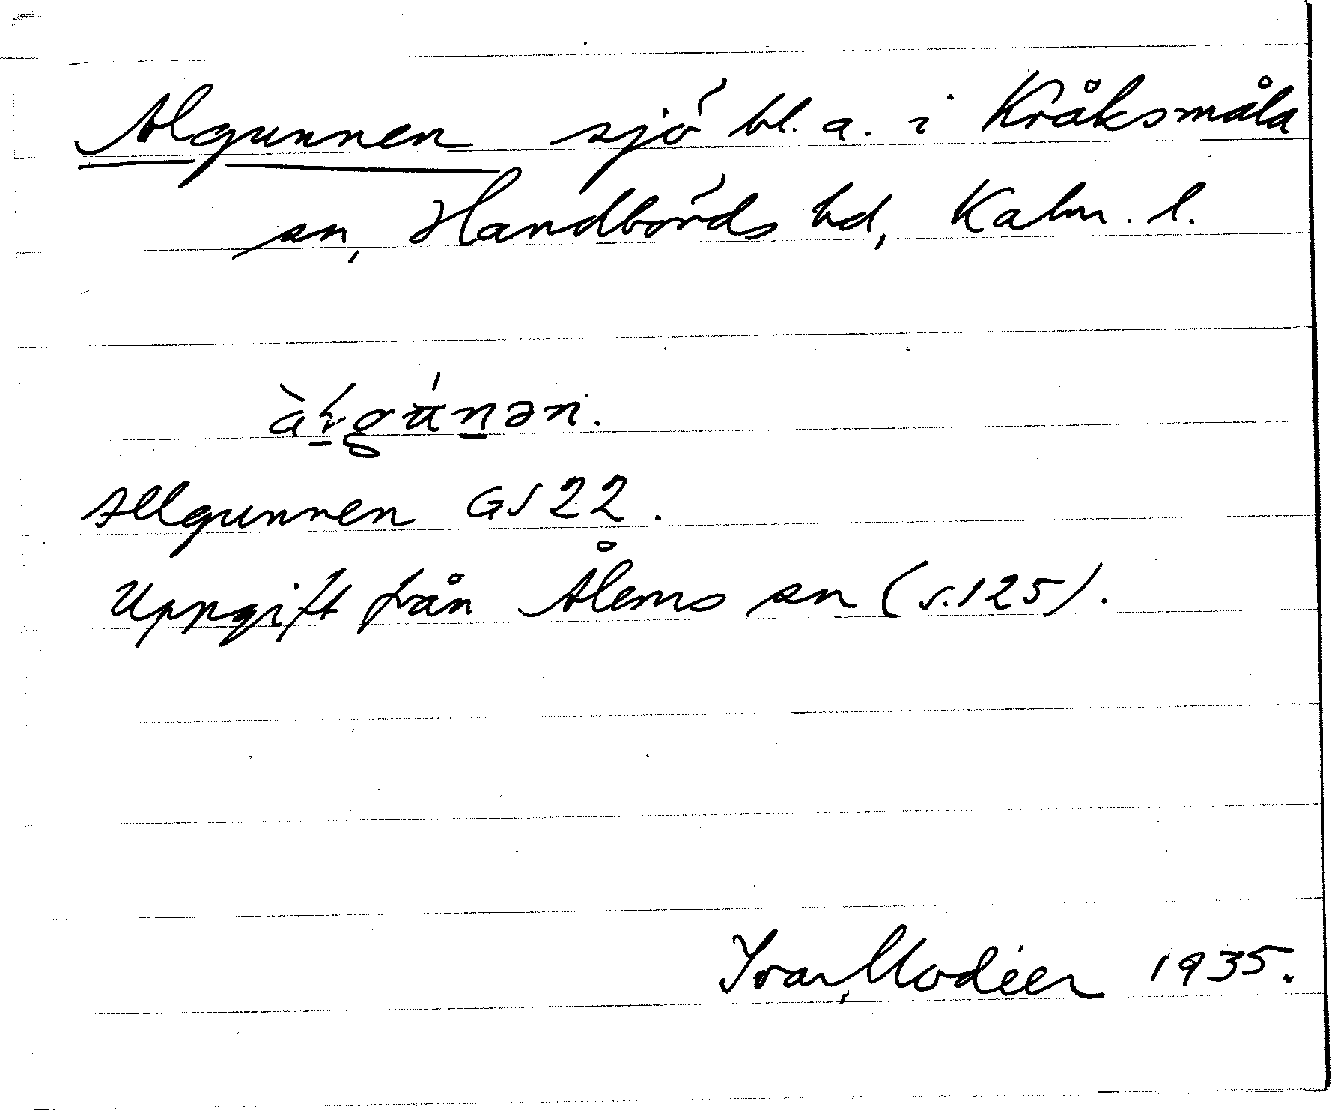 Algunnen sjö bl. a. i Kråksmåla
sn, Handbörds hd, Kalm. l.
Allgunnen GS 22.
Uppgift från Ålems sn (s. 125).
Ivar Modéer 1935.